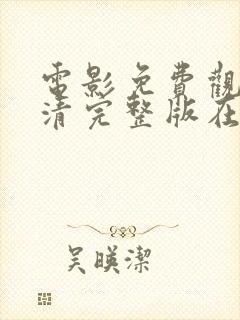 電影免費觀
清完整版在
吴暎潔